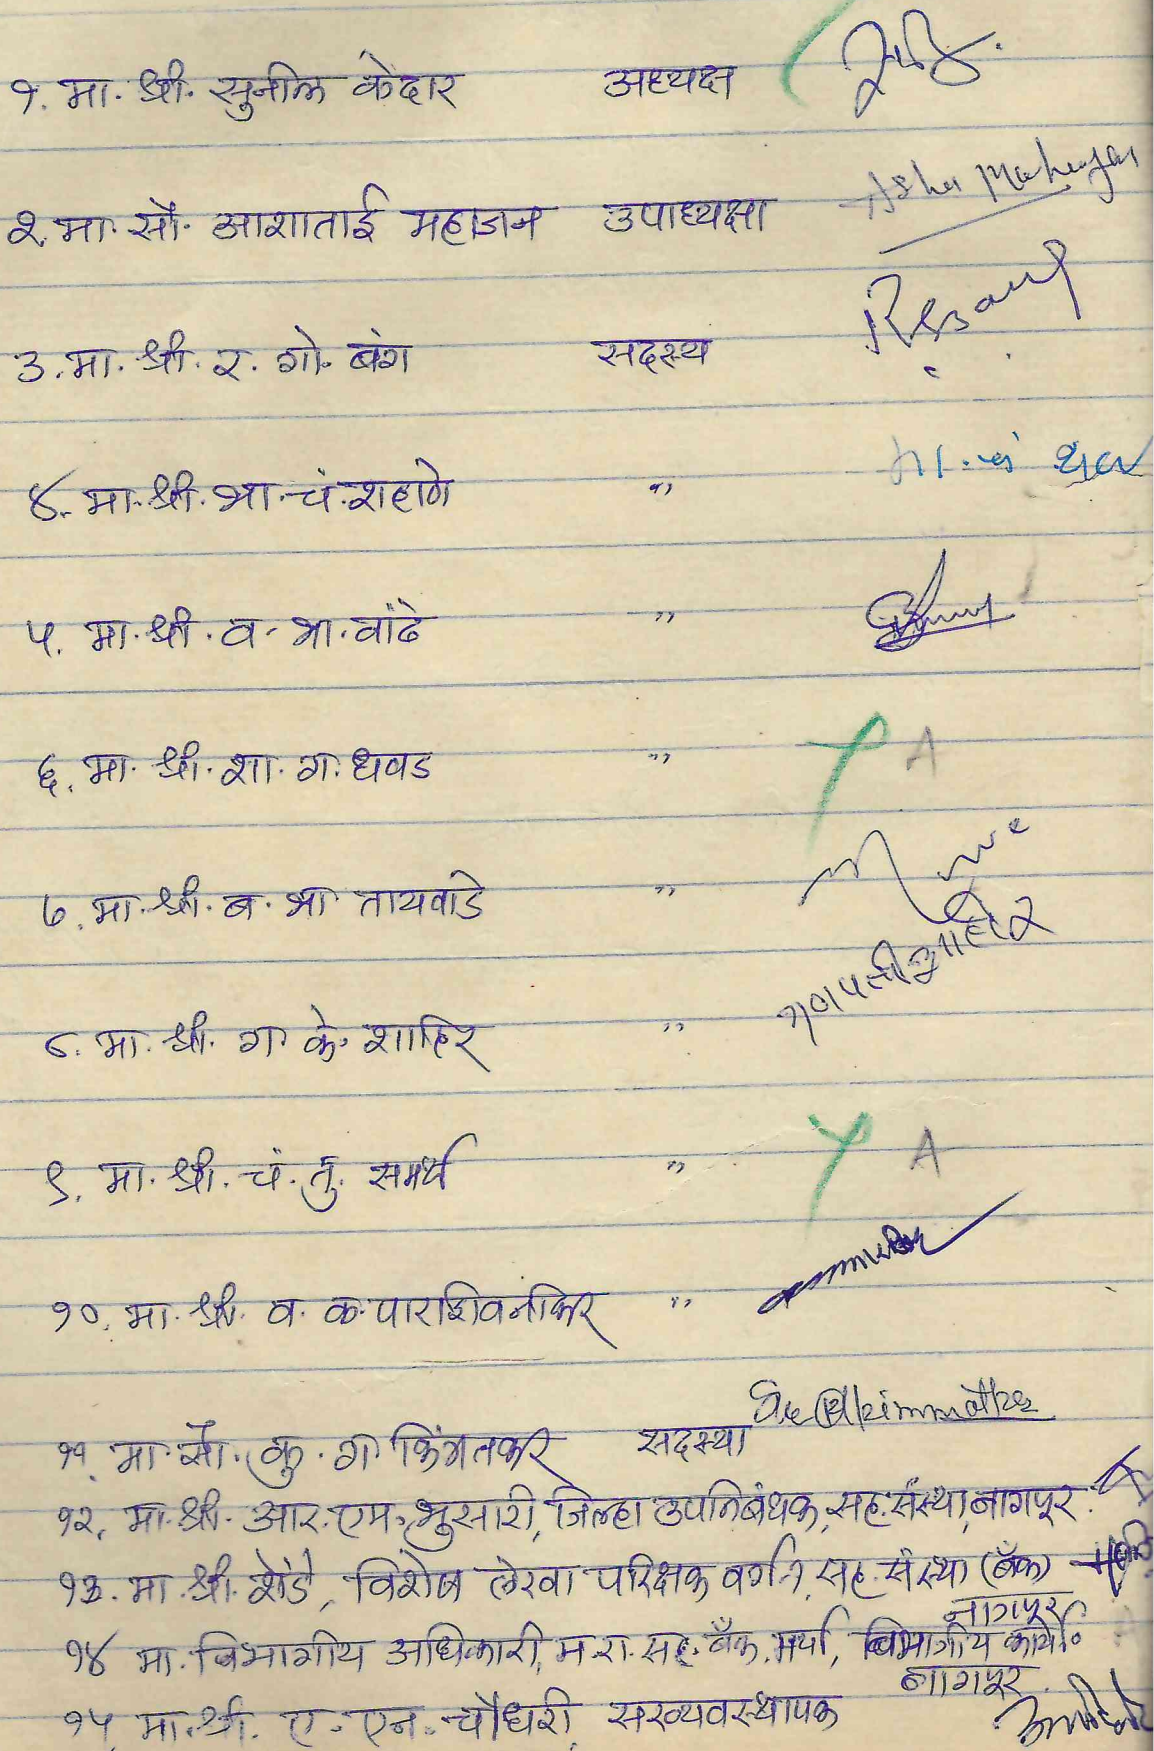 १. मा. श्री. सुनील केदार अध्यक्ष
२. मा. सौ. आशाताई महाजन उपाध्यक्षा Asha Mahajan
३. मा. श्री. र. गो. बंग सदस्य
४. मा. श्री. भा. चं. शहाणे "
५. मा. श्री. व. भा. वांढे "
६. मा. श्री. शा. ग. धवड " A
७. मा. श्री. ब. भा तायवाडे "
८. मा. श्री. ग. के. शाहिर "
९. मा. श्री. चं. तु. समर्थ " A
१०. मा. श्री. व. क. पाराशिवनीकर "
११. मा. सौ. कु. ग. किंमतकर सदस्या
१२. मा. श्री. आर. एम. भुसारी, जिल्हा उपनिबंधक, सह. संस्था, नागपूर.
१३. मा. श्री. शेंडे, विशेष लेखा परिक्षक वर्ग-१, सह. संस्था (बँक)
नागपूर
१४ मा. विभागीय अधिकारी, म. रा. सह. बँक. मर्या, विभागीय कार्या०
नागपूर.
१५ मा. श्री. ए. एन. चौधरी, सरव्यवस्थापक